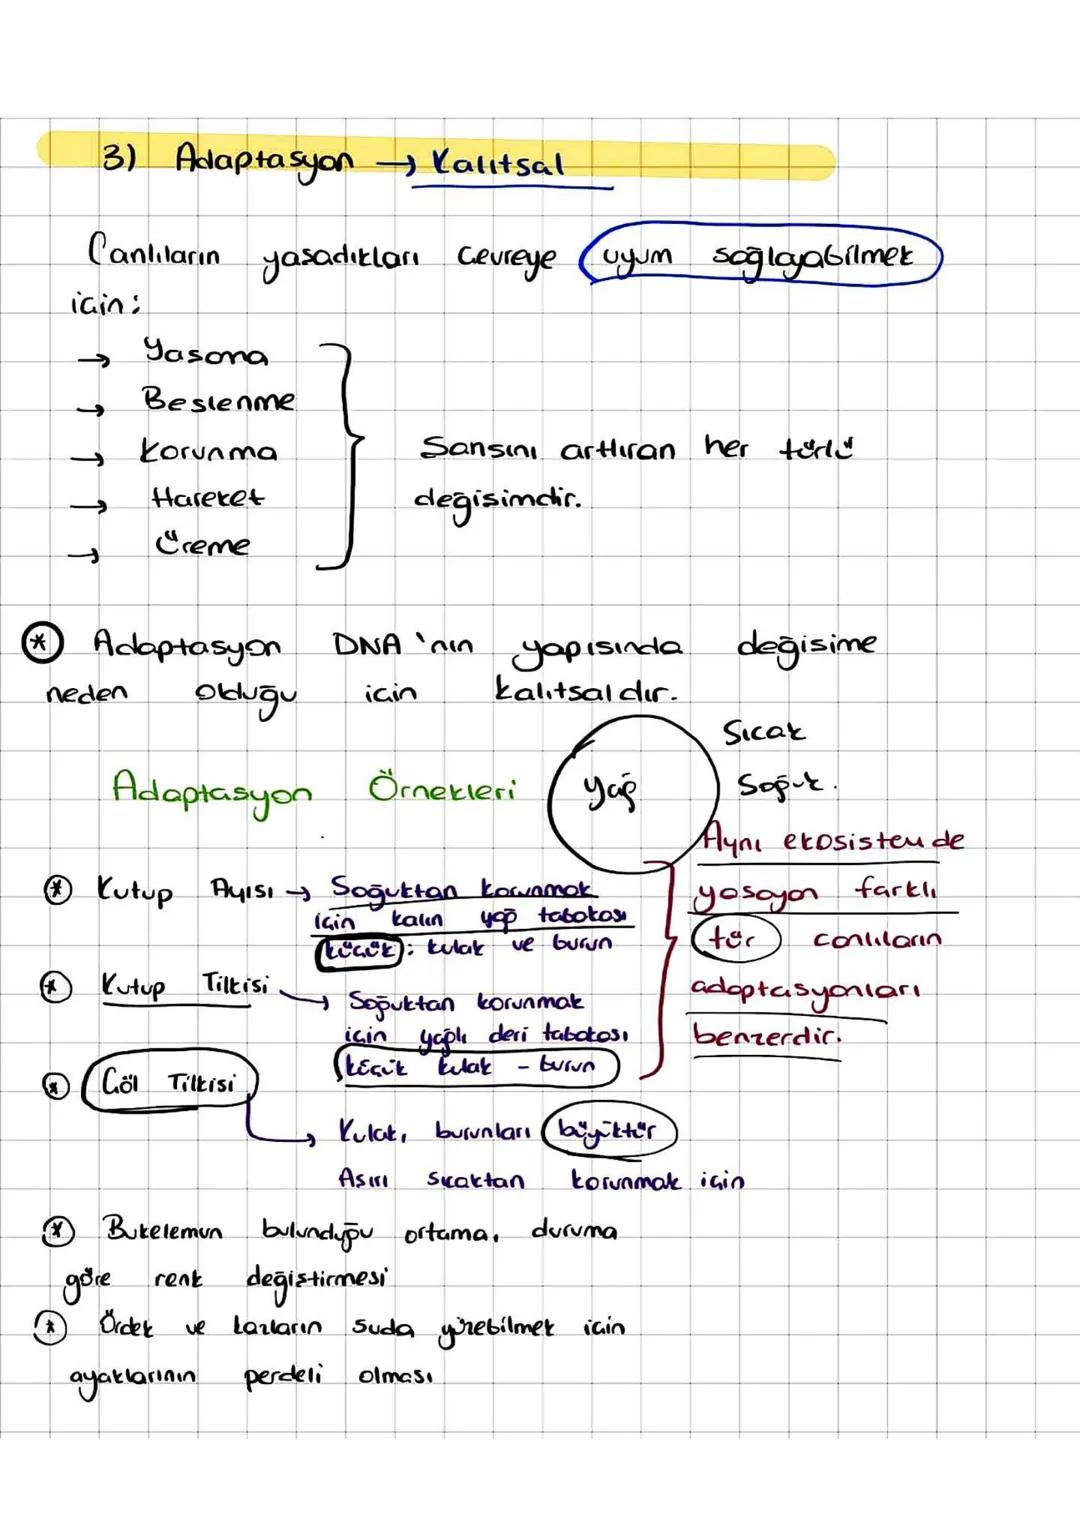 3) Adaptasyon → Kalıtsal
Canlıların yasadıkları cevreye uyum sağlayabilmek
icin:
→ Yasama
→ Beslenme
→ Korunma
→ Hareket
→ Üreme
Sansını arttıran her türlü
değisimdir.
* Adaptasyon DNA'nın yapısında değisime
neden olduğu icin kalıtsaldır.
Sıcak
Adaptasyon Örnekleri
Yağ
Soğuk.
* Kutup Ayısı → Soğuktan korunmak
icin kalın yağ tabakası
küçük: kulak ve burun
* Kutup Tilkisi → Soğuktan korunmak
icin yağlı deri tabakası
küçük kulak - burun
Aynı ekosistemde
yasayan farklı
tür canlıların
adaptasyonları
benzerdir.
* Cöl Tilkisi
→ Kulak, burunları büyüktür
Asırı sıcaktan korunmak icin
* Bukelemun bulunduğu ortama, duruma
göre renk değiştirmesi
* Ördek ve kazların suda yüzebilmek icin
ayaklarının perdeli olması